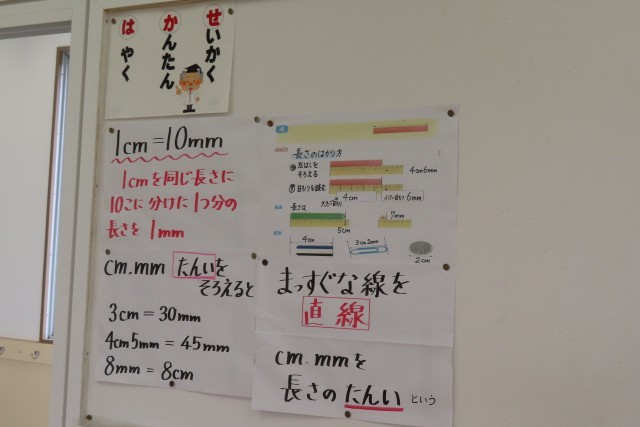 せいかく
かんたん
はやく
1cm=10mm
1cmを同じ長さに
10こに分けた1つ分の
長さを1mm
cm.mm たんいを
そろえると
3cm=30mm
4cm5mm=45mm
8mm=8cm
長さのはかり方
左はしを
そろえる
4cm6mm
目もりを読む
4cm
6mm
長さは
5cm
7mm
4cm
3cm2mm
2cm
まっすぐな線を
直線
cm.mmを
長さのたんいという